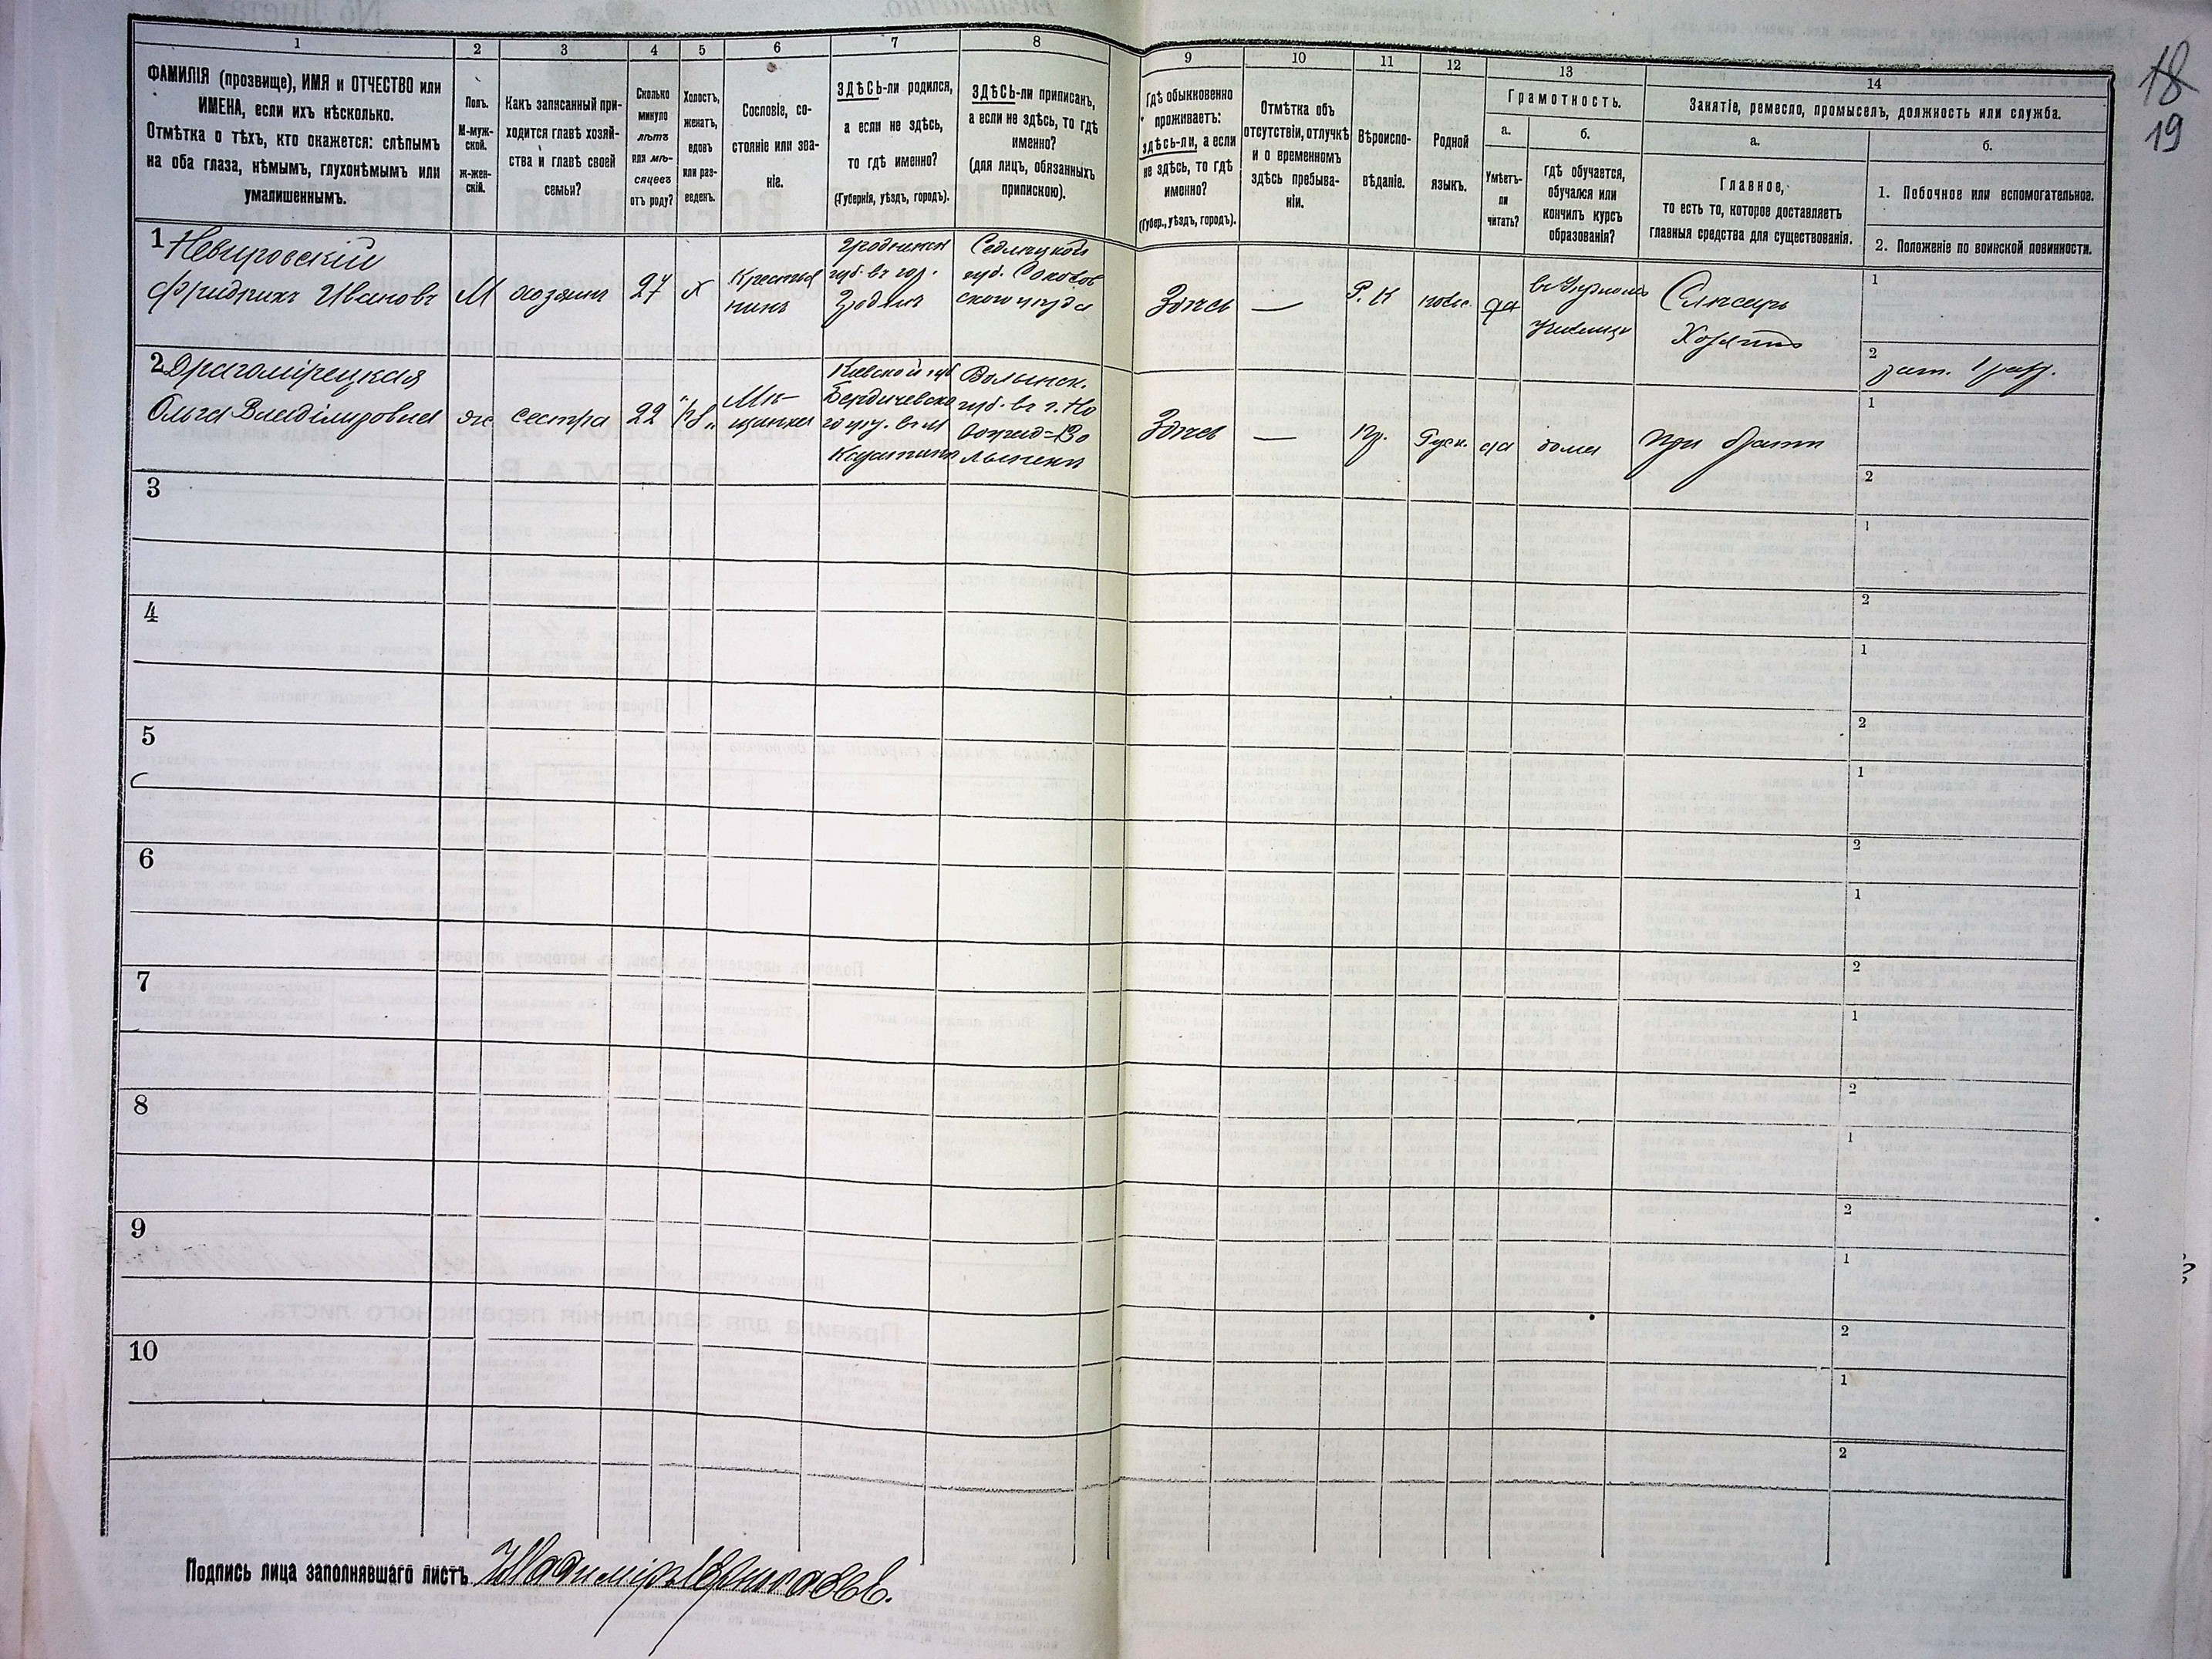 18
19
1
2
3
4
5
6
7
8
9
10
11
12
13
14
ФАМИЛІЯ (прозвище), ИМЯ и ОТЧЕСТВО или
ИМЕНА, если ихъ нѣсколько.
Отмѣтка о тѣхъ, кто окажется: слѣпымъ
на оба глаза, нѣмымъ, глухонѣмымъ или
умалишеннымъ.
Полъ.
М-муж-
ской.
ж-жен-
скій.
Какъ записанный при-
ходится главѣ хозяй-
ства и главѣ своей
семьи?
Сколько
минуло
лѣтъ
или мѣ-
сяцевъ
отъ роду?
Холостъ,
женатъ,
вдовъ
или раз-
веденъ.
Сословіе, со-
стояніе или зва-
ніе.
ЗДѢСЬ-ли родился,
а если не здѣсь,
то гдѣ именно?
(Губернія, уѣздъ, городъ).
ЗДѢСЬ-ли приписанъ,
а если не здѣсь, то гдѣ
именно?
(для лицъ, обязанныхъ
припискою).
Гдѣ обыкновенно
проживаетъ:
здѣсь-ли, а если
не здѣсь, то гдѣ
именно?
(Губер., уѣздъ, городъ).
Отмѣтка объ
отсутствіи, отлучкѣ
и о временномъ
здѣсь пребыва-
ніи.
Вѣроиспо-
вѣданіе.
Родной
языкъ.
Грамотность.
а.
Умѣетъ-
ли
читать?
б.
гдѣ обучается,
обучался или
кончилъ курсъ
образованія?
Занятіе, ремесло, промыселъ, должность или служба.
а.
Главное,
то есть то, которое доставляетъ
главныя средства для существованія.
б.
1. Побочное или вспомогательное.
2. Положеніе по воинской повинности.
1
Фридрихъ Ивановъ
М
хозяинъ
27
х
Крестья
нинъ
губ. въ гор.
Седлецкой
губ.
Здѣсь
—
Р. К
да
Слесарь
1
2
2
Драгомірецкая
Ольга Владиміровна
ж
сестра
22
Мѣ-
щанка
Кіевской губ
Бердичевска
Волынск.
губ. въ г. Но
воградъ-Во
лынскъ
Здѣсь
—
Пр.
Русск.
да
дома
при братѣ
1
2
3
1
2
4
1
2
5
1
2
6
1
2
7
1
2
8
1
2
9
1
2
10
1
2
Подпись лица заполнявшаго листъ